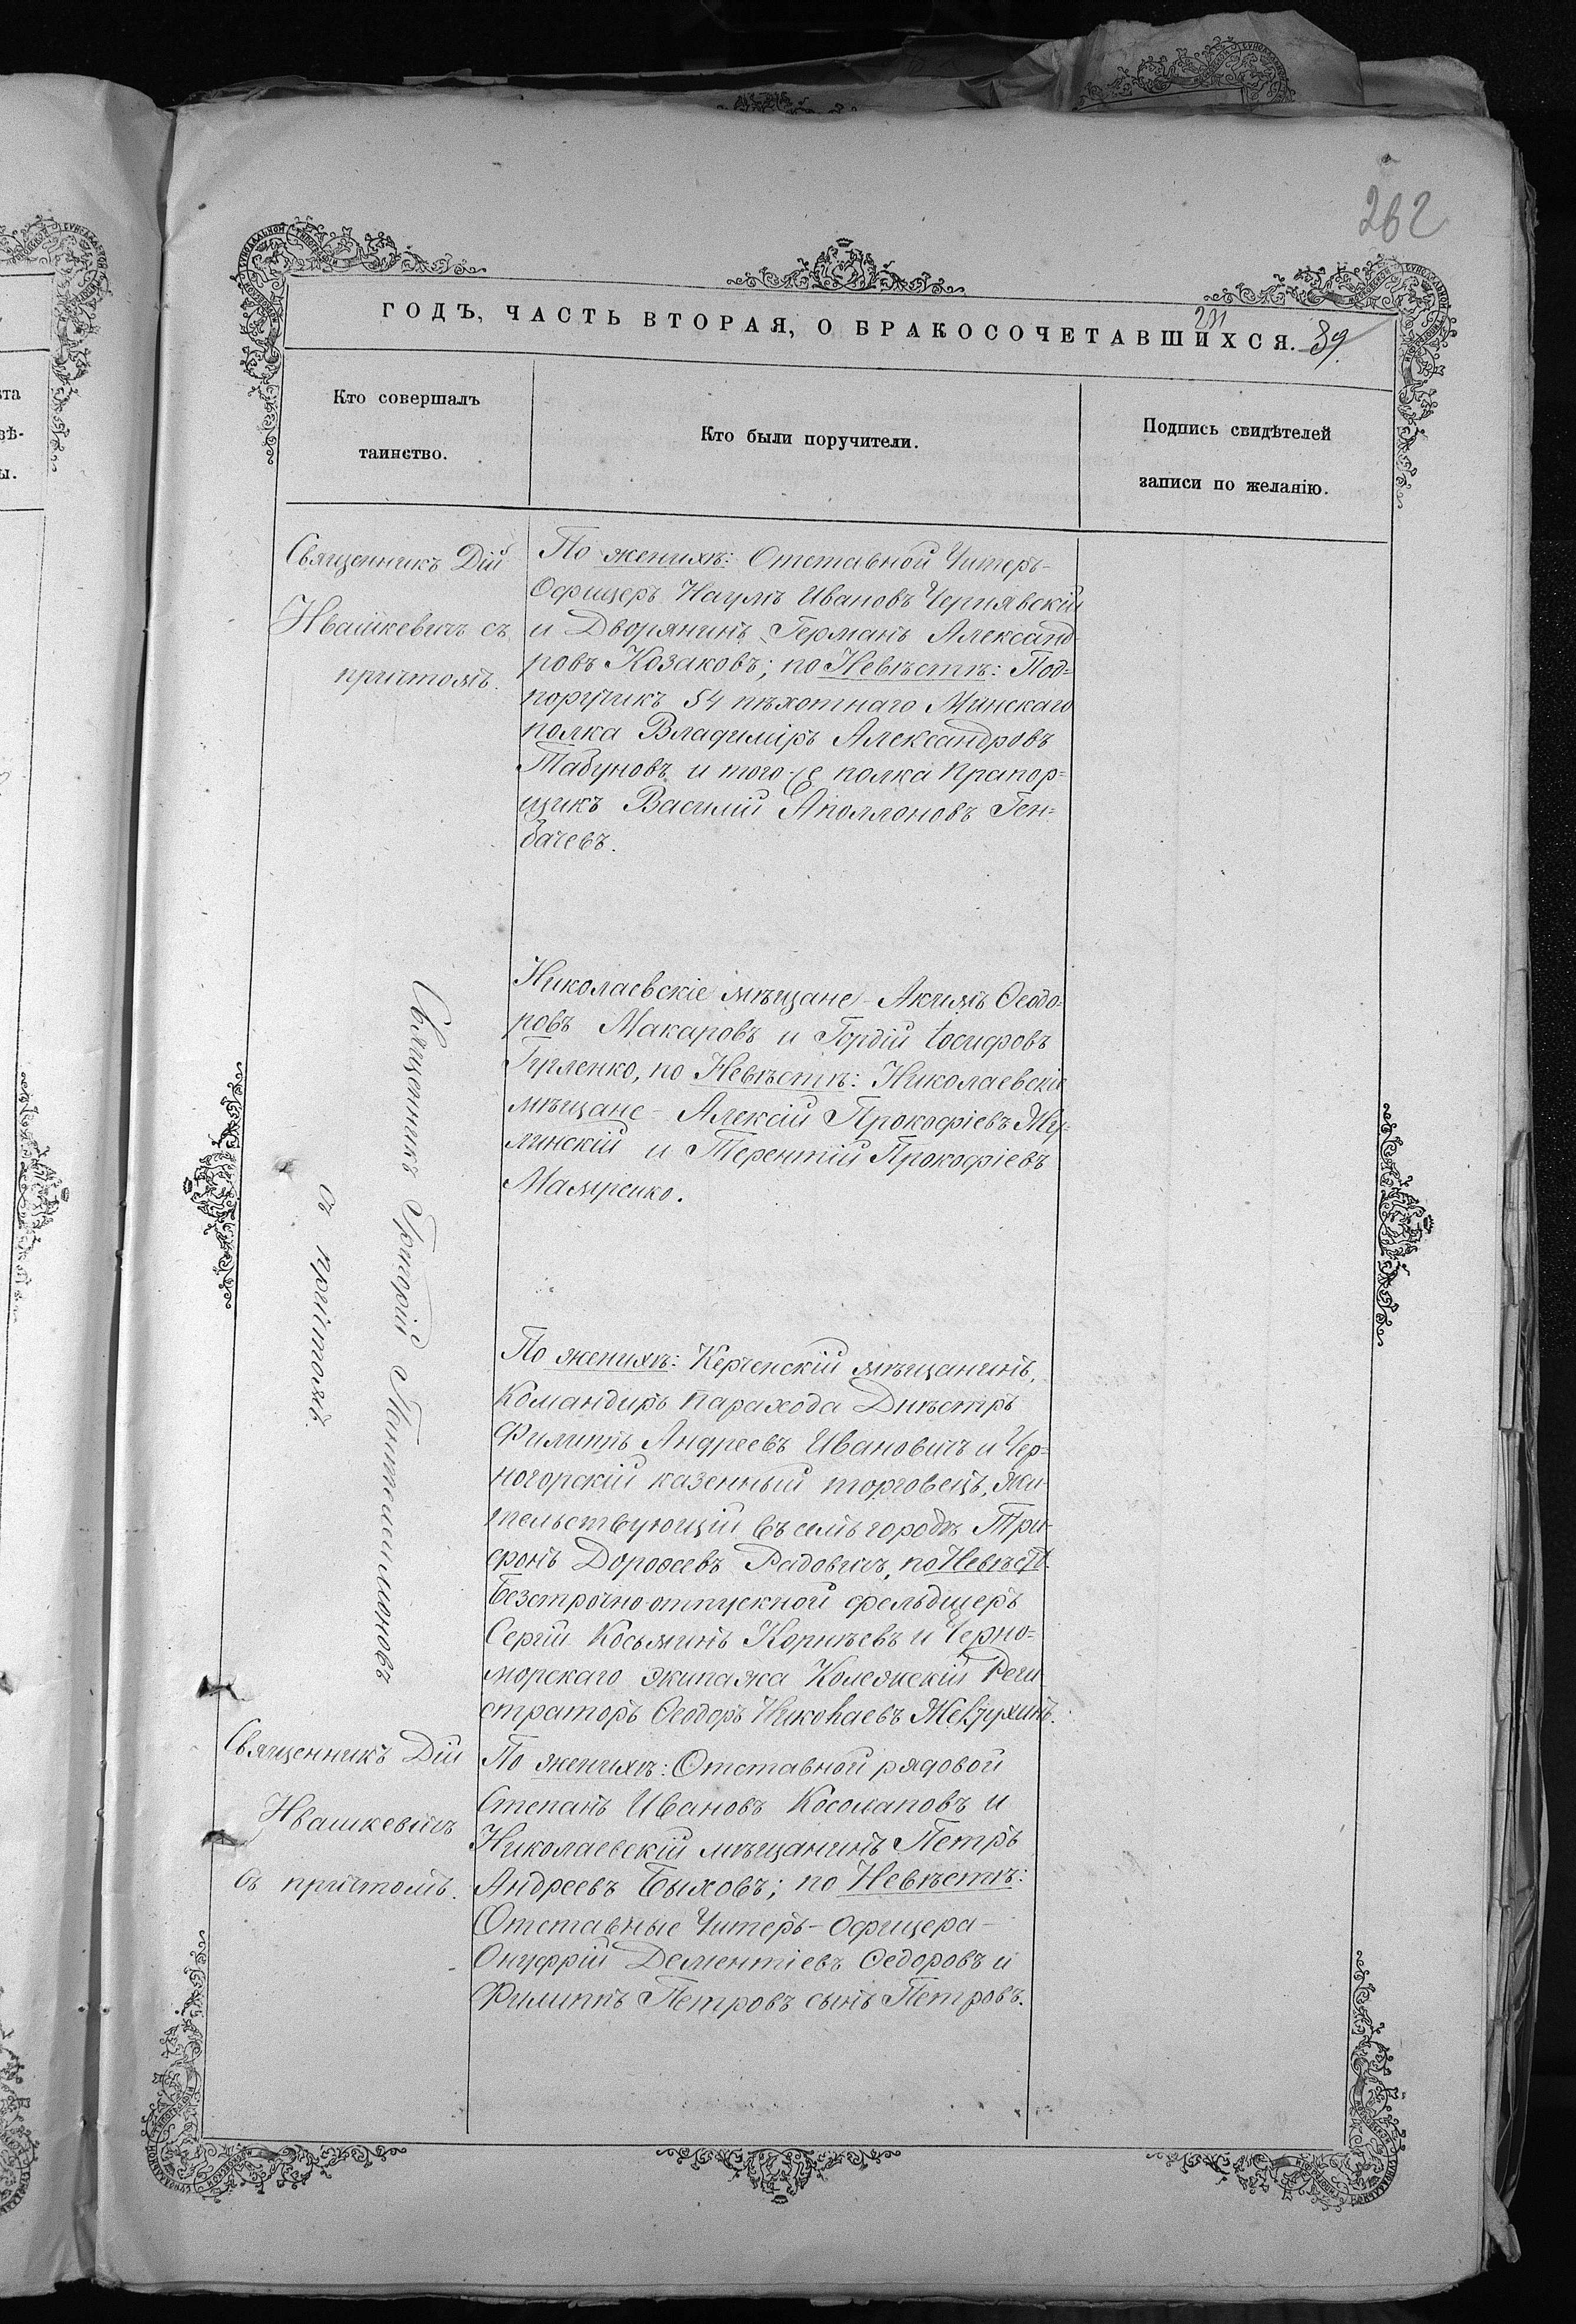 262
ГОДЪ, ЧАСТЬ ВТОРАЯ, О БРАКОСОЧЕТАВШИХСЯ.
231
39
Кто совершалъ
таинство.
Кто были поручители.
Подпись свидѣтелей
записи по желанію.
Священникъ Дій
Ивашкевичъ съ
причтомъ.
По женихѣ: Отставной Унтеръ-
Офицеръ Наумъ Ивановъ Чернявскій
и Дворянинъ Германъ Александ-
ровъ Козаковъ; по Невѣстѣ: Под=
поручикъ 54 пѣхотнаго Минскаго
полка Владиміръ Александровъ
Табуновъ и того же полка Прапор=
щикъ Василій Аполлоновъ Ген=
бачевъ.
Священникъ Григорій Пантелеимоновъ
съ причтомъ.
Николаевскіе мѣщане - Акимъ Ѳеодо=
ровъ Макаровъ и Гордій Іосифовъ
Гуленко, по Невѣстѣ: Николаевскіе
мѣщане - Алексій Прокофіевъ Жу-
линскій и Терентій Прокофіевъ
По женихѣ: Керченскій мѣщанинъ,
Командиръ парахода Днѣстръ
Филиппъ Андреевъ Ивановичъ и Чер=
ногорскій казенный торговецъ, жи-
тельствующій въ семъ городѣ Три-
фонъ Дороѳеевъ Радовичъ, по Невѣстѣ.
Безсрочно отпускной фельдшеръ
Сергій Косьминъ Корнѣевъ и Черно=
морскаго экипажа Колежскій Реги
страторъ Ѳеодоръ Николаевъ
Священникъ Дій
Ивашкевичъ
съ причтомъ.
По женихѣ: Отставной рядовой
Степанъ Ивановъ Косолаповъ и
Николаевскій мѣщанинъ Петръ
Андреевъ Быховъ; по Невѣстѣ:
Отставные Унтеръ-Офицера -
Онуфрій Дементіевъ Ѳедоровъ и
Филиппъ Петровъ сынъ Петровъ.